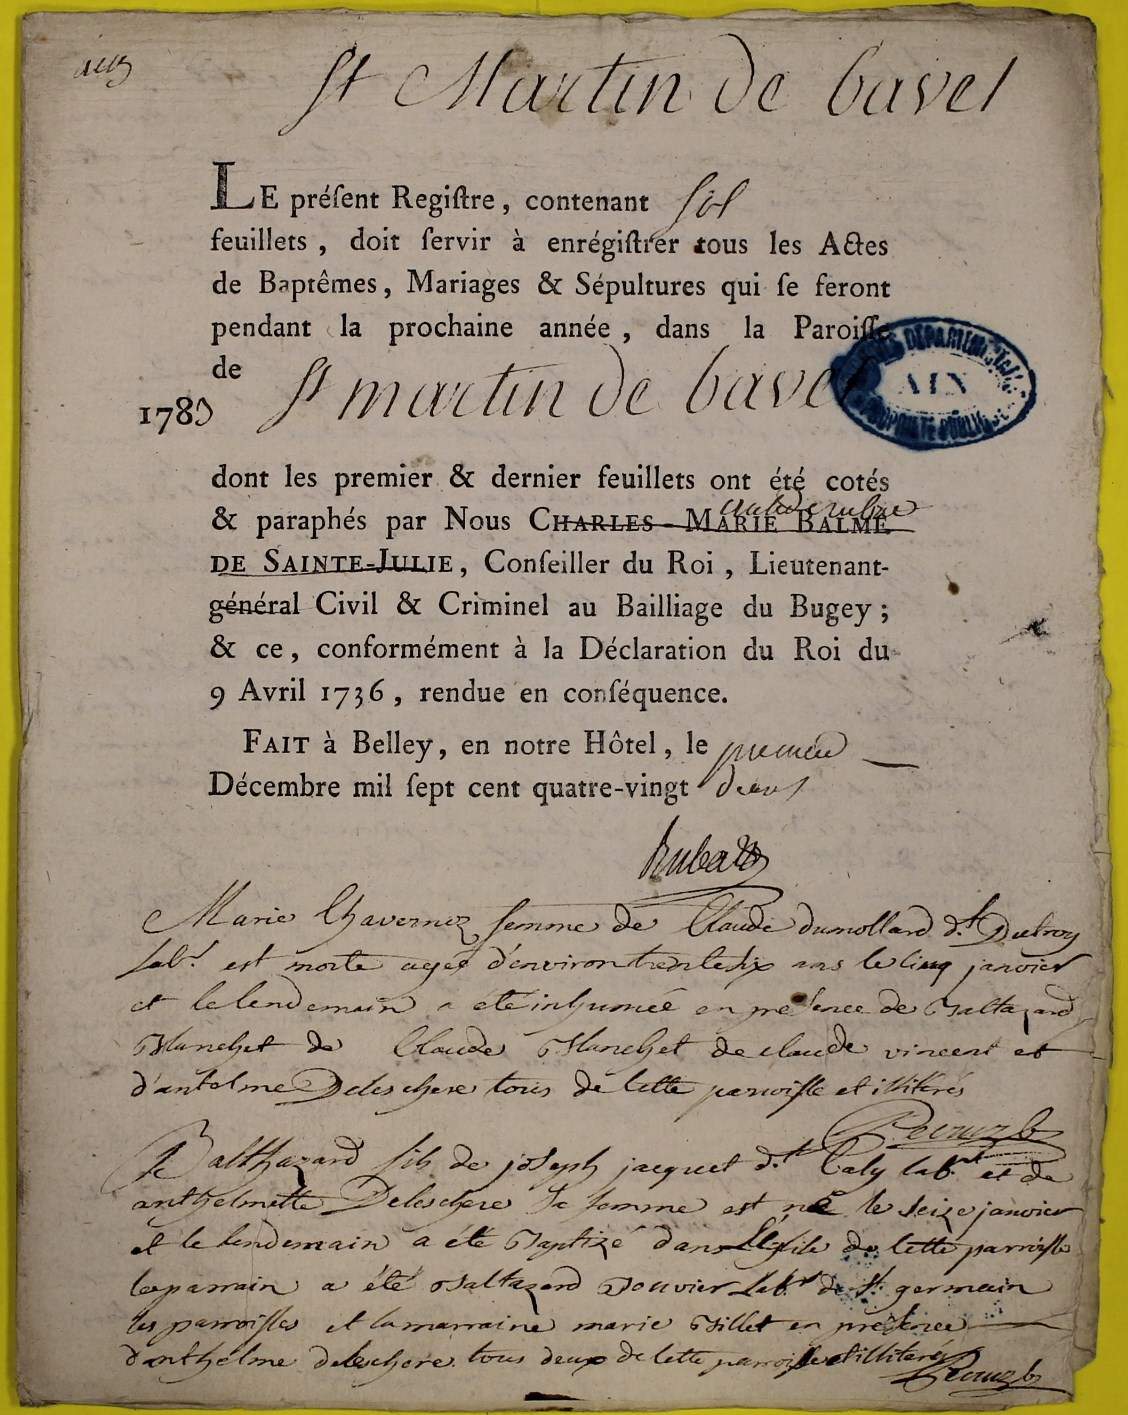 St Martin de bavel
LE préſent Regiſtre, contenant six
feuillets, doit ſervir à enrégiſtrer tous les Actes
de Baptêmes, Mariages & Sépultures qui ſe feront
pendant la prochaine année, dans la Paroiſſe
de St martin de bavel
AIN
1783
dont les premier & dernier feuillets ont été cotés
& paraphés par Nous CHARLES-MARIE BALME
DE SAINTE-JULIE, Conſeiller du Roi, Lieutenant-
général Civil & Criminel au Bailliage du Bugey;
& ce, conformément à la Déclaration du Roi du
9 Avril 1736, rendue en conſéquence.
FAIT à Belley, en notre Hôtel, le premier
Décembre mil ſept cent quatre-vingt deux
Marie Chavernoz femme de Claude dumollard d.t
lab.r est morte agée d'environ trente six ans le cinq janvier
et le lendemain a été inhumée en présence de Baltazard
Blanchet de Claude Blanchet de claude vincent et
d'antelme Deleschere tous de cette parroisse et illiterés
Balthazard fils de joseph jacquet d.t Caly lab.r et de
anthelmette Deleschere sa femme est né le seize janvier
et le lendemain a été Baptizé dans L'Eglise de cette parroisse
le parrain a été Baltazard Bouvier lab.r de St germain
les parroisses et la marraine marie Billet en présence
d'anthelme deleschere tous deux de cette parroisse et illiterés